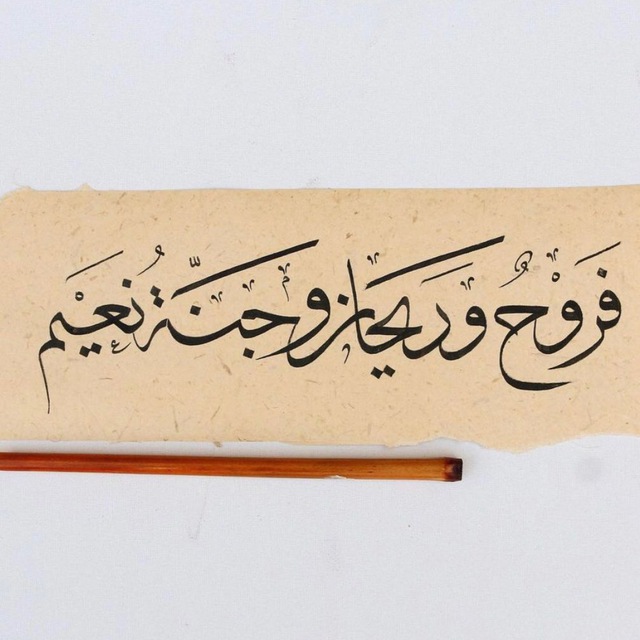 فروح وريحان وجنة نعيم